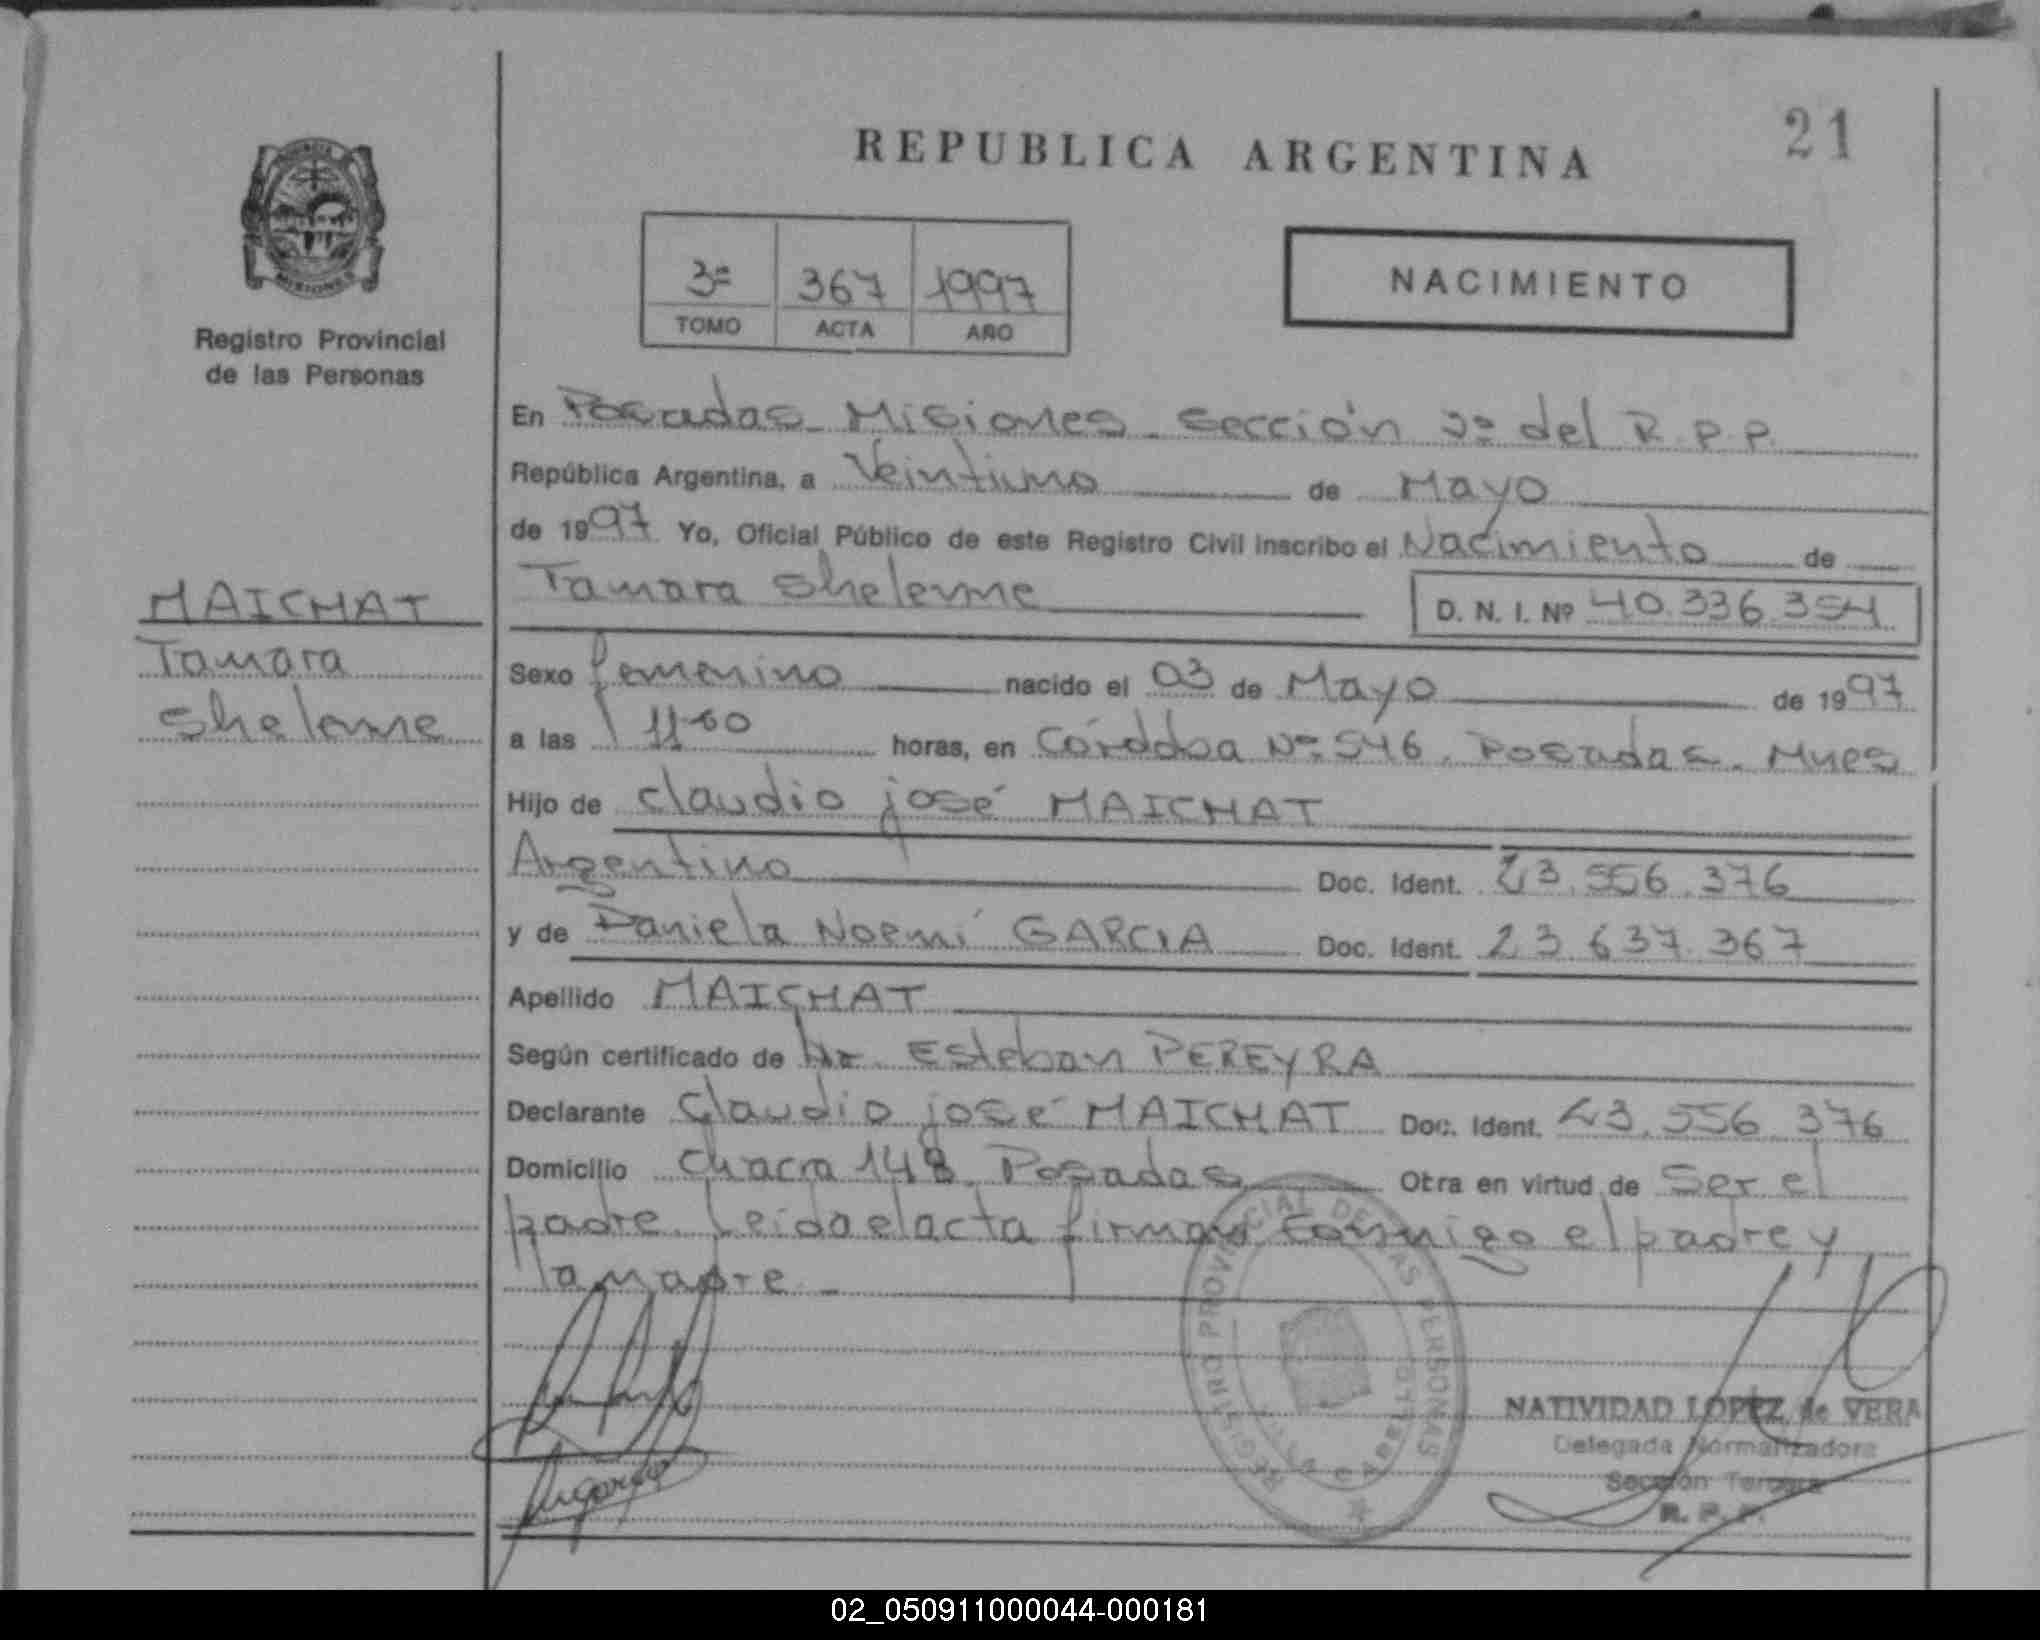 REPUBLICA ARGENTINA
21
PROVINCIA
MISIONES
Registro Provincial
de las Personas
3ª 367 1997
TOMO ACTA AÑO
NACIMIENTO
En Posadas Misiones Sección 3ª del R.P.P.
República Argentina, a Veintiuno de Mayo
de 1997 Yo, Oficial Público de este Registro Civil inscribo el Nacimiento de
Tamara Sheleme D. N. I. Nº 40.336.354
MAICHAT
Tamara
Sheleme
Sexo femenino nacido el 03 de Mayo de 1997
a las 11:00 horas, en Córdoba Nº 546. Posadas. Mnes
Hijo de Claudio josé MAICHAT
Argentino Doc. Ident. 23.556.376
y de Daniela Noemí GARCIA Doc. Ident. 23.637.367
Apellido MAICHAT
Según certificado de Dr. Esteban PEREYRA
Declarante Claudio josé MAICHAT Doc. Ident. 23.556.376
Domicilio Chacra 148 Posadas Otra en virtud de Ser el
padre. Leida el acta firman conmigo el padre y
la madre.
REGISTRO PROVINCIAL DE LAS PERSONAS
NATIVIDAD LOPEZ de VERA
Delegada Normalizadora
Sección Tercera
R. P. P.
02_050911000044-000181